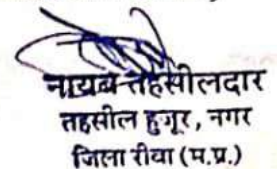 नायब तहसीलदार
तहसील हुजूर, नगर
जिला रीवा (म.प्र.)